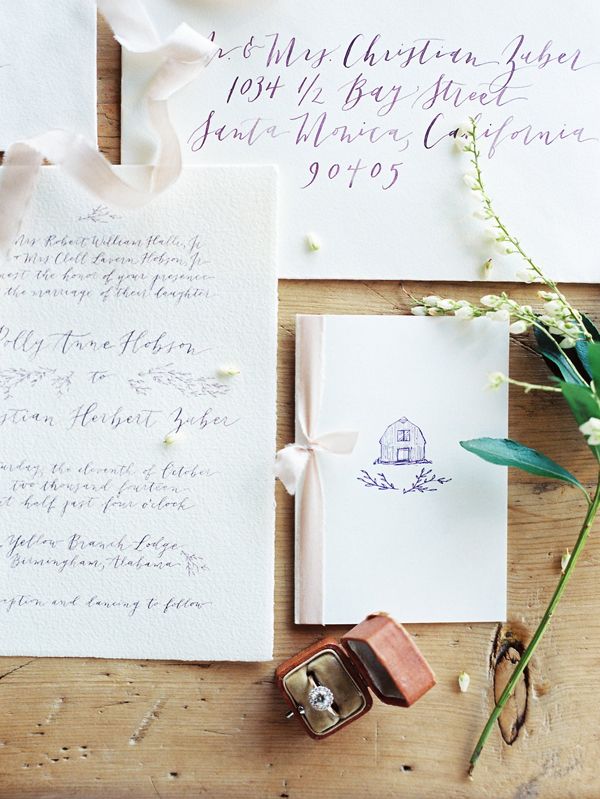 & Mrs. Christian Zuber
1034 1/2 Bay Street
Santa Monica, California
90405
Mrs Robert William Haller, Jr
& Mrs Clell Lavern Hobson, Jr
the honor of your presence
the marriage of their daughter
Polly Anne Hobson
to
Herbert Zuber
the eleventh of October
two thousand fourteen
at half past four o'clock
Yellow Branch Lodge
Birmingham, Alabama
and dancing to follow